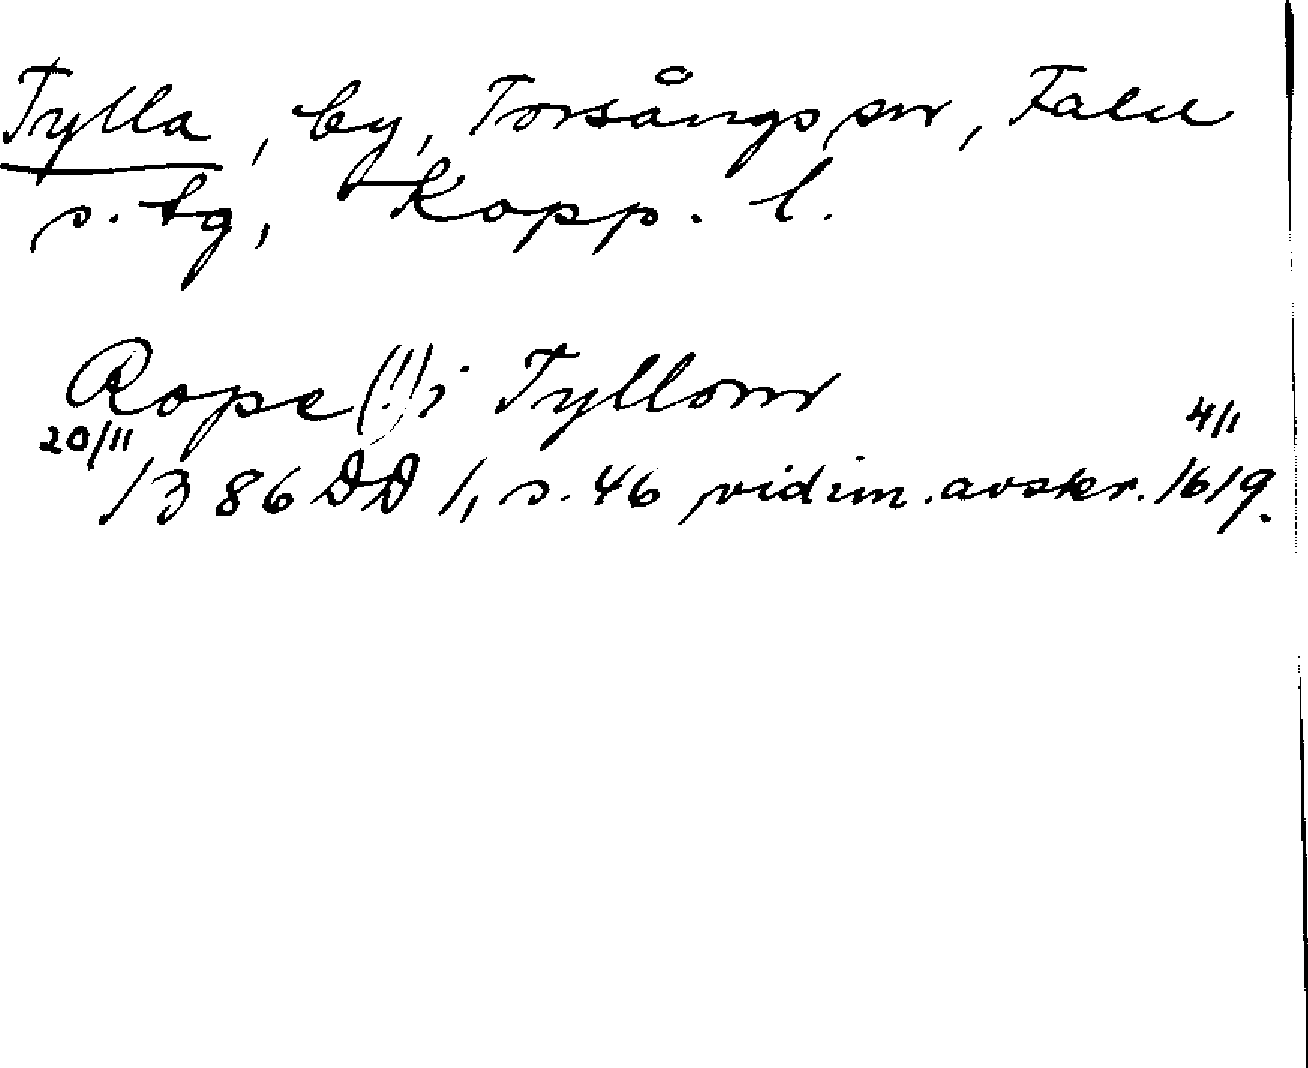 Tylla, by, Torsångs sn, Falu
s. tg, Kopp. l.
Rope (!) i Tyllom
20/11 1386 DD 1, s. 46 vidim. avskr. 4/1 1619.